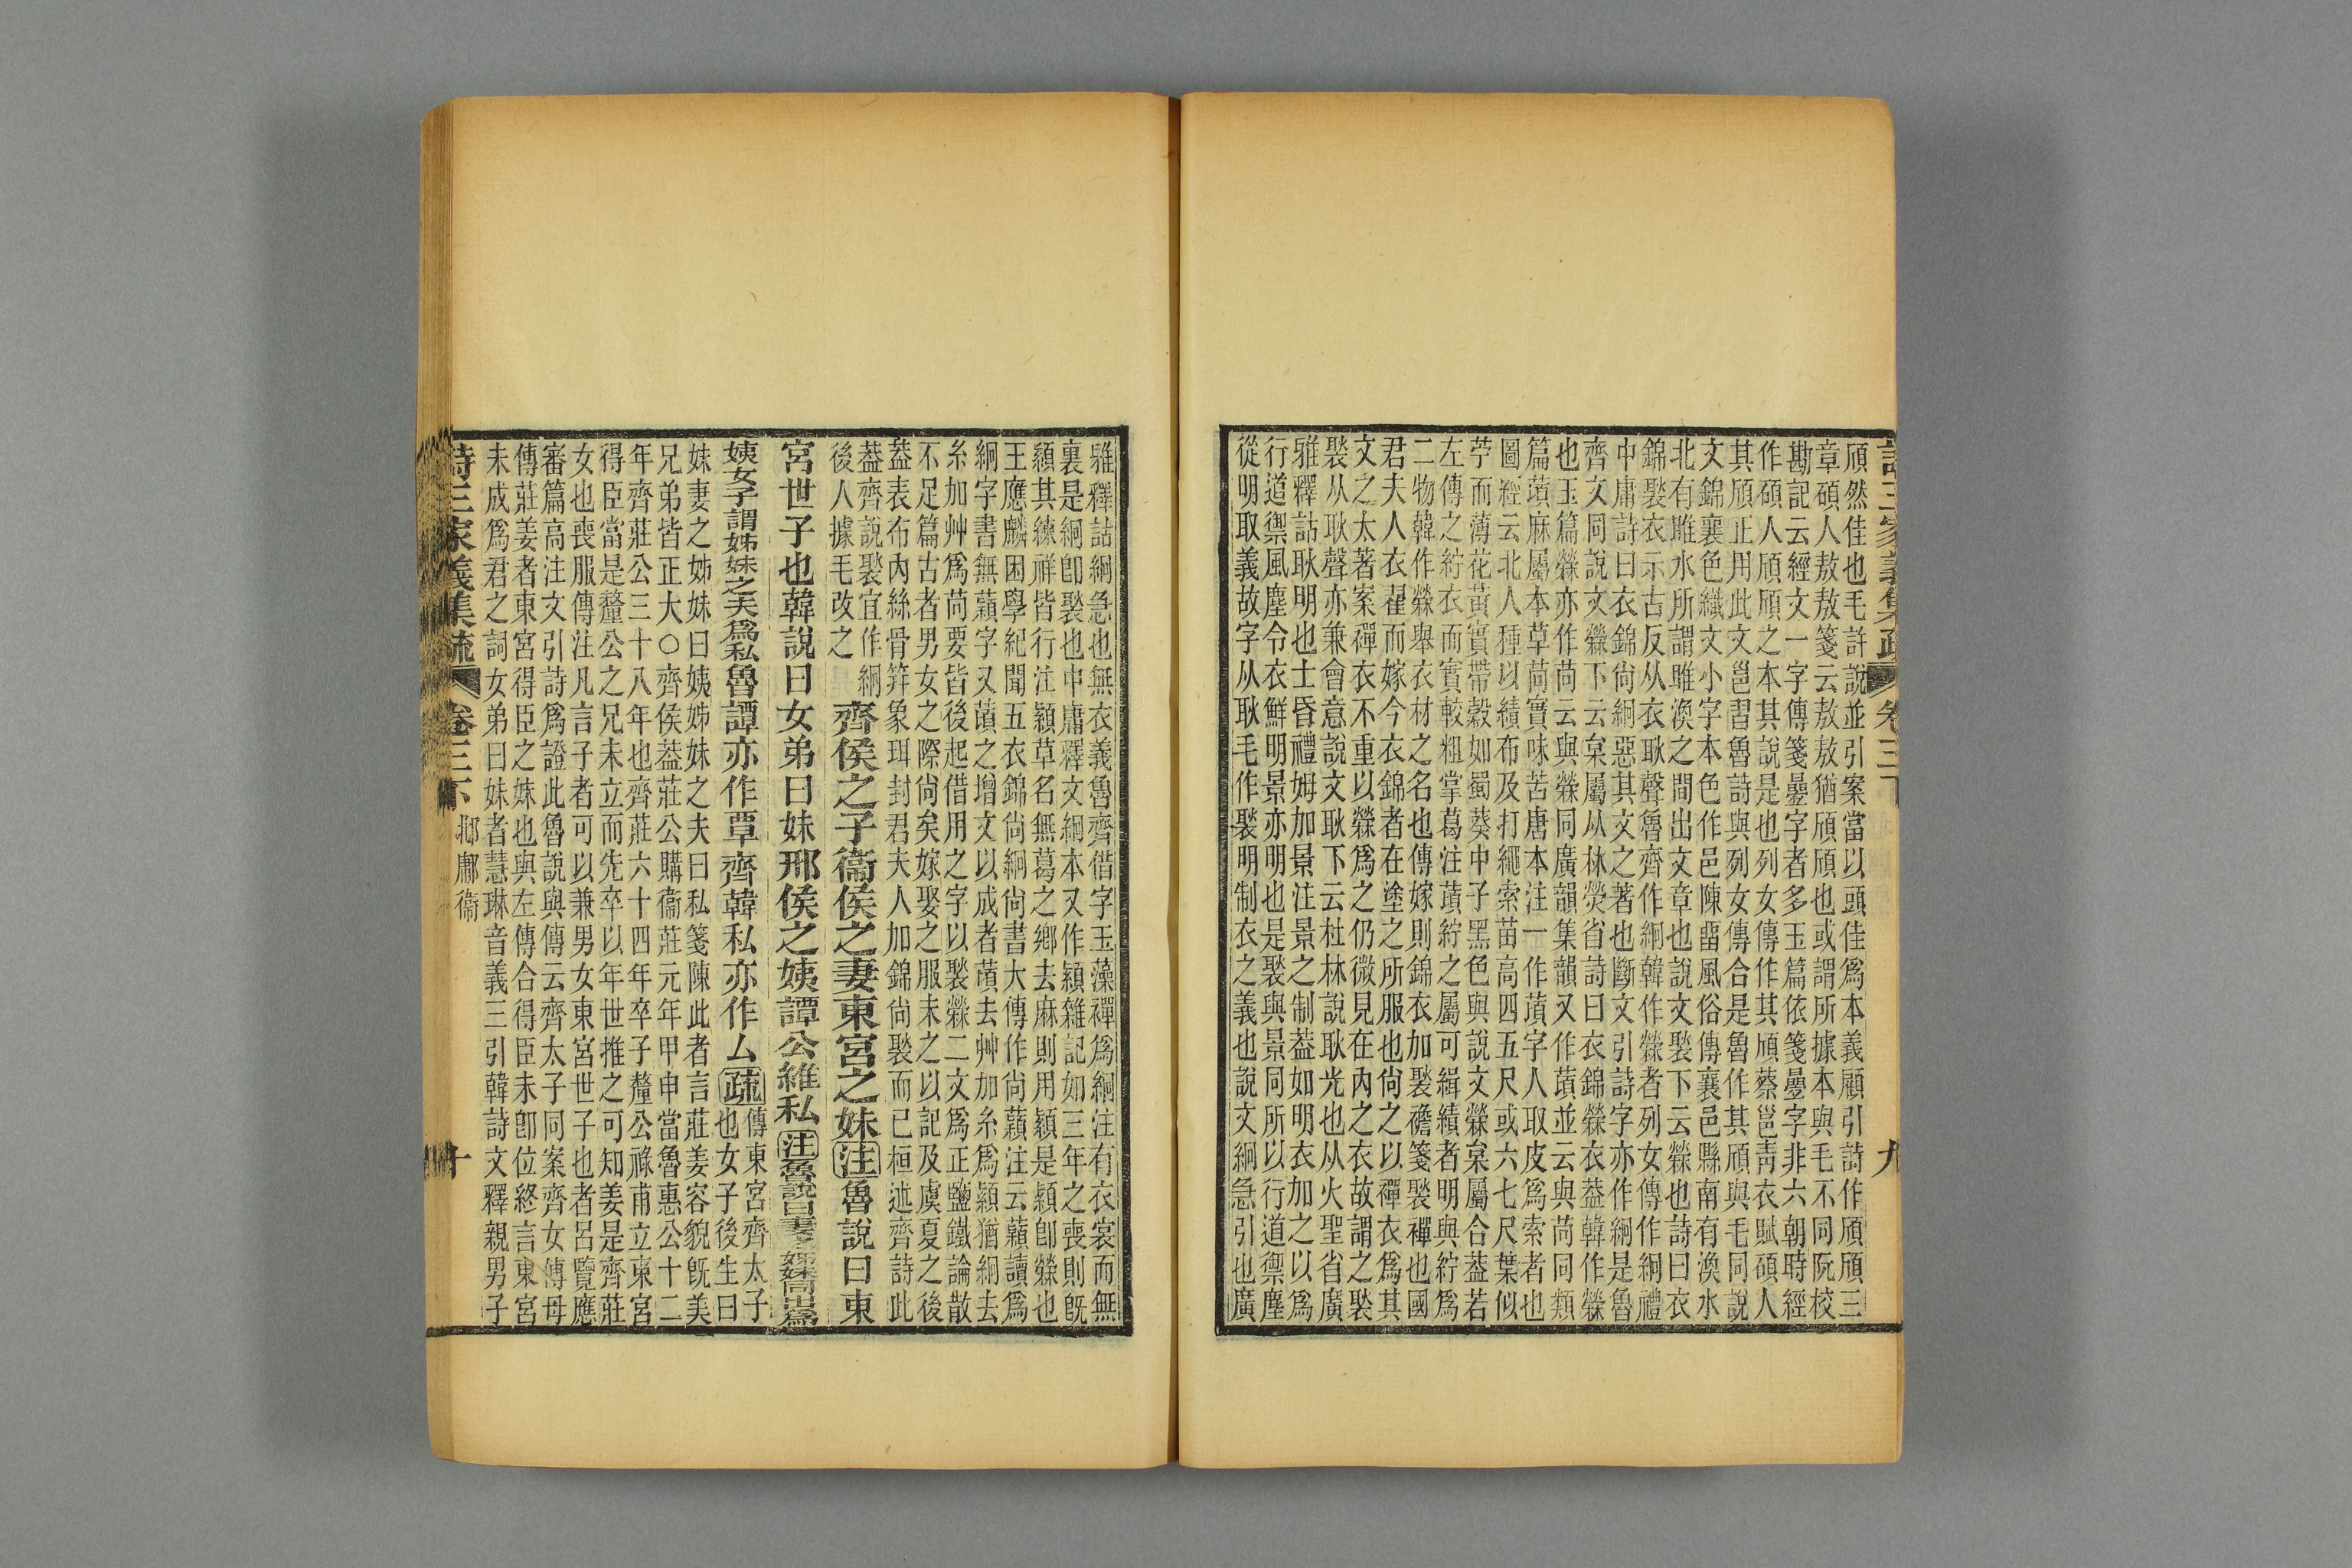 詩三家義集疏 卷三下 九
頎然佳也毛許說並引案當以頭佳爲本義顧引詩作頎頎三
章碩人敖敖箋云敖敖猶頎頎也或謂所據本與毛不同阮校
勘記云經文一字傳箋曡字者多玉篇依箋曡字非六朝時經
作碩人頎頎之本其說是也列女傳作其頎蔡邕靑衣賦碩人
其頎正用此文邕習魯詩與列女傳合是魯作其頎與毛同說
文錦襄色織文小字本色作邑陳畱風俗傳襄邑縣南有渙水
北有雎水所謂雎渙之閒出文章也說文褧下云檾也詩曰衣
錦褧衣示古反从衣耿聲魯齊作絅韓作檾者列女傳作絅禮
中庸詩曰衣錦尙絅惡其文之著也斷文引詩字亦作絅是魯
齊文同說文檾下云枲屬从林熒省詩曰衣錦檾衣葢韓作檾
也玉篇檾亦作苘云與檾同廣韻集韻又作䔛並云與苘同類
篇䔛麻屬本草苘實味苦唐本注一作䔛字人取皮爲索者也
圖經云北人種以績布及打繩索苗高四五尺或六七尺葉似
苧而薄花黃實帶殼如蜀葵中子黑色與說文檾枲屬合葢若
左傳之紵衣而實較粗掌葛注䔛紵之屬可緝績者明與紵爲
二物韓作檾舉衣材之名也傳嫁則錦衣加褧襜箋褧禪也國
君夫人衣翟而嫁今衣錦者在塗之所服也尙之以禪衣爲其
文之太著案禪衣不重以檾爲之仍微見在內之衣故謂之褧
褧从耿聲亦兼會意說文耿下云杜林說耿光也从火聖省廣
雅釋詁耿明也士昏禮姆加景注景之制葢如明衣加之以爲
行道禦風塵令衣鮮明景亦明也是褧與景同所以行道禦塵
從明取義故字从耿毛作褧明制衣之義也說文絅急引也廣
雅釋詁絅急也無衣義魯齊借字玉藻禪爲絅注有衣裳而無
裏是絅卽褧也中庸釋文絅本又作潁雜記如三年之喪則旣
潁其練祥皆行注潁草名無葛之鄉去麻則用潁是潁卽檾也
王應麟困學紀聞五衣錦尙絅尙書大傳作尙蘔注云蘔讀爲
絅字書無蘔字又䔛之增文以成者䔛去艸加糸爲潁猶絅去
糸加艸爲苘要皆後起借用之字以褧檾二文爲正鹽鐵論散
不足篇古者男女之際尙矣嫁娶之服未之以記及虞夏之後
葢表布內絲骨笄象珥封君夫人加錦尙褧而已桓述齊詩此
葢齊說褧宜作絅
後人據毛改之
齊侯之子衞侯之妻東宮之妹注魯說曰東
宮世子也韓說曰女弟曰妹邢侯之姨譚公維私注魯說曰妻之姊妹同出爲
姨女子謂姊妹之夫爲私魯譚亦作覃齊韓私亦作厶疏傳東宮齊太子
也女子後生曰
妹妻之姊妹曰姨姊妹之夫曰私箋陳此者言莊姜容貌旣美
兄弟皆正大○齊侯葢莊公購衞莊元年甲申當魯惠公十二
年齊莊公三十八年也齊莊六十四年卒子釐公祿甫立東宮
得臣當是釐公之兄未立而先卒以年世推之可知姜是齊莊
女也喪服傳注凡言子者可以兼男女東宮世子也者呂覽應
審篇高注文引詩爲證此魯說與傳云齊太子同案齊女傅母
傳莊姜者東宮得臣之妹也與左傳合得臣未卽位終言東宮
未成爲君之詞女弟曰妹者慧琳音義三引韓詩文釋親男子
詩三家義集疏 卷三下 邶鄘衞 十